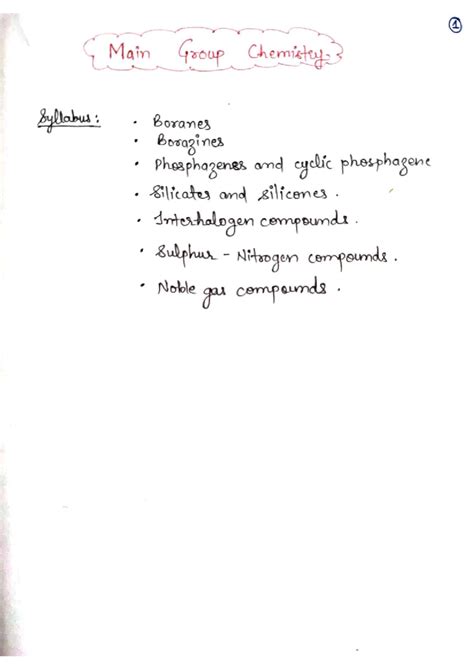 1
Main Group Chemistry.
Syllabus : • Boranes
• Borazines
• Phosphazenes and cyclic phosphazene
• Silicates and silicones .
• Interhalogen compounds .
• Sulphur - Nitrogen compounds .
• Noble gas compounds .